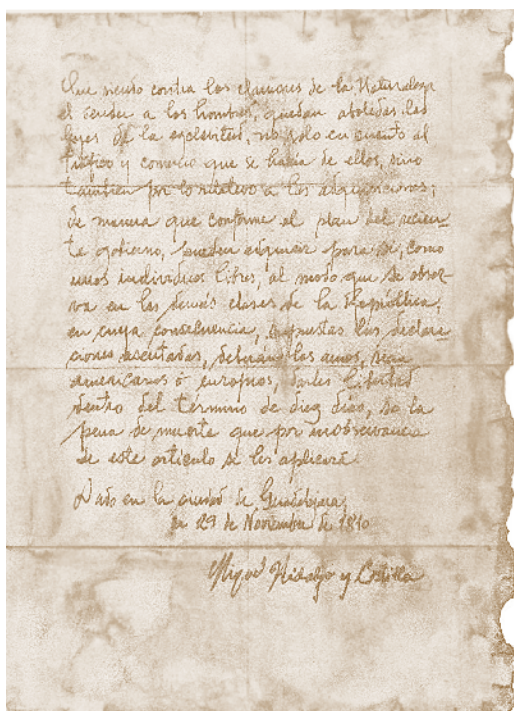 Que siendo contra los clamores de la Naturaleza
el vender a los hombres, quedan abolidas las
leyes de la esclavitud, no solo en cuanto al
tráfico y comercio que se hacia de ellos, sino
tambien por lo relativo a las adquisiciones;
de manera que conforme al plan del recien-
te gobierno, pueden adquirir para si, como
unos individuos libres, al modo que se obser-
va en las demás clases de la República,
en cuya consecuencia, supuestas las declara-
ciones asentadas, deberán los amos, sean
americanos ó europeos, darles libertad
dentro del término de diez dias, so la
pena de muerte que por inobservancia
de este articulo se les aplicará.
Dado en la ciudad de Guadalajara,
en 29 de Noviembre de 1810
Miguel Hidalgo y Costilla